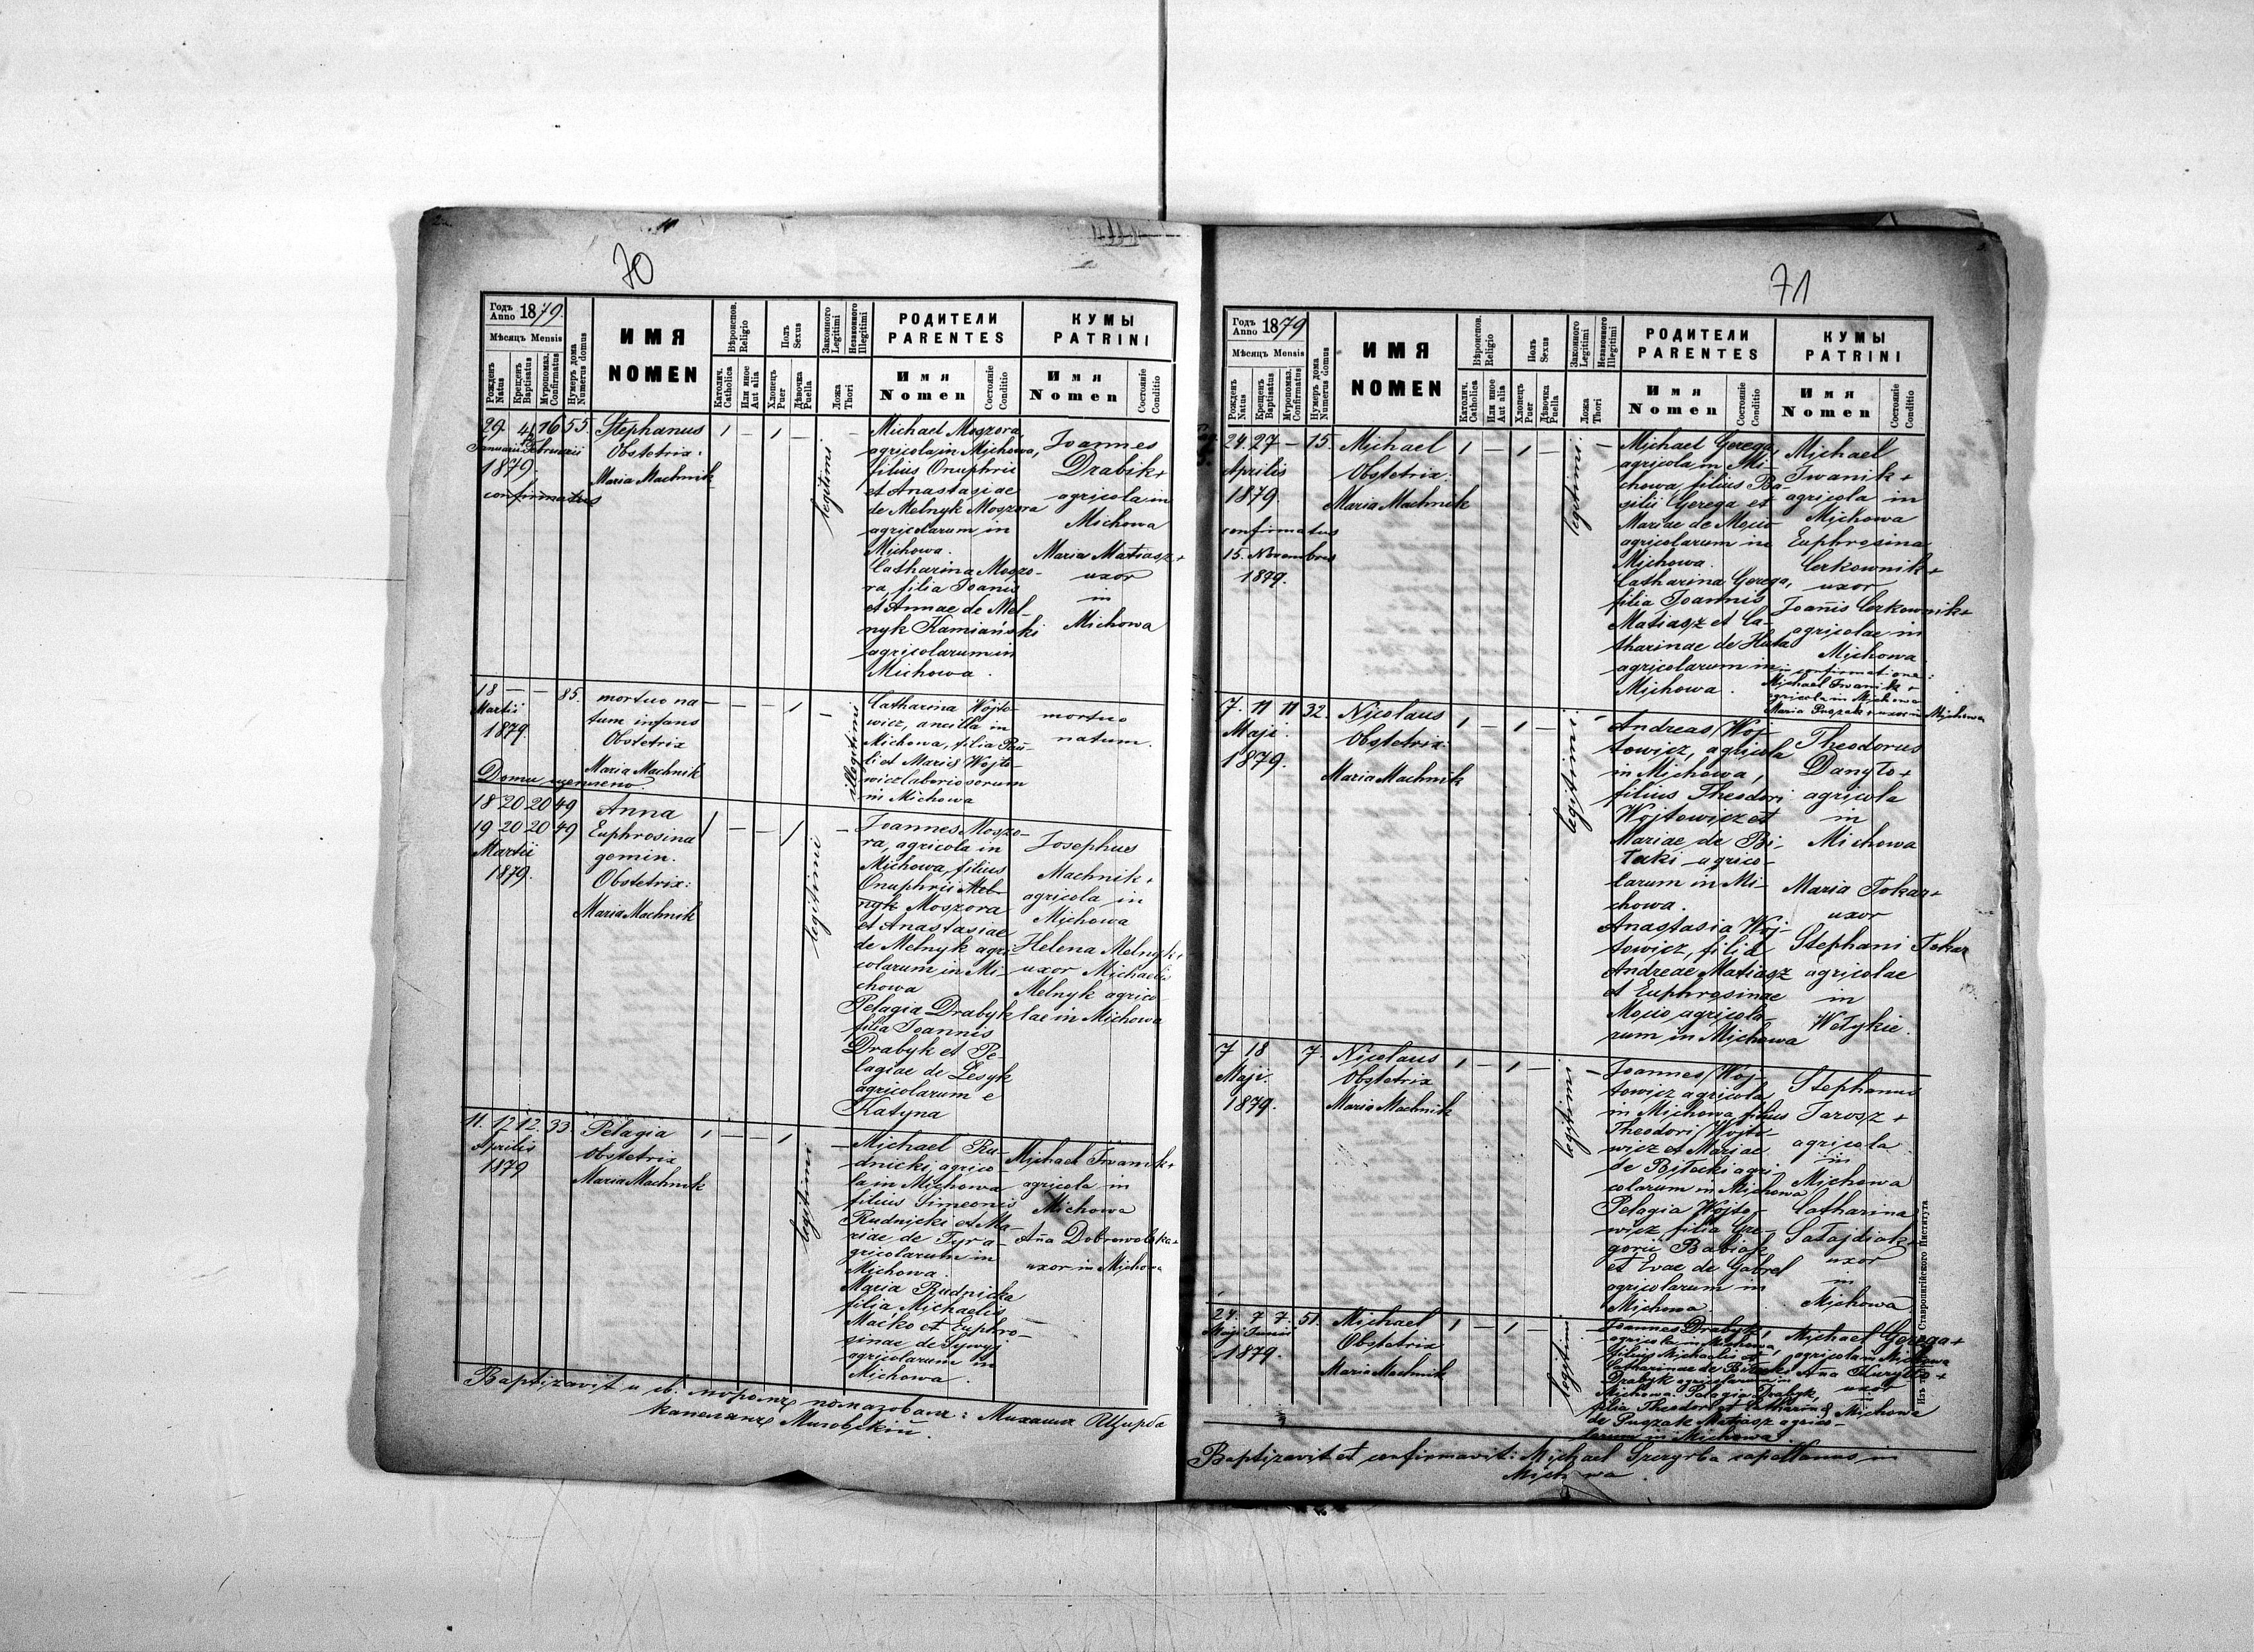 70
Годъ Anno 1879.
Мѣсяцъ Mensis
Рожденъ Natus
Крещенъ Baptisatus
Муропомаз. Confirmatus
Нумеръ дома Numerus domus
ИМЯ
NOMEN
Вѣроиспов. Religio
Католич. Catholica
Или иное Aut alia
Полъ Sexus
Хлопецъ Puer
Дѣвочка Puella
Законного Legitimi
Незаконного Illegitimi
Ложа Thori
РОДИТЕЛИ
PARENTES
Имя
Nomen
Состояніе Conditio
КУМЫ
PATRINI
Имя
Nomen
Состояніе Conditio
29 4 16 55
Januarii Februarii
1879.
confirmatus
Stephanus
Obstetrix:
Maria Machnik
1 – 1 –
legitimi
Michael Moszora,
agricola in Michowa,
filius Onuphrii
et Anastasiae
de Melnyk Moszora
agricolarum in
Michowa.
Catharina Moszo-
ra, filia Joanis
et Annae de Mel-
nyk Kamiański
agricolarum in
Michowa.
Joannes
Drabik +
agricola in
Michowa
Maria Matiasz +
uxor
in
Michowa
18 – – 85.
Martii
1879.
mortuo na-
tum infans
Obstetrix
Maria Machnik
illegitimi
Catharina Wojto-
wicz, ancilla in
Michowa, filia Pau-
li et Maris Wojto-
wicz laboriosorum
in Michowa
mortuo
natum.
18 20 20 49
19 20 20 49
Martii
1879.
Anna
Euphrosina
gemin.
Obstetrix:
Maria Machnik
legitimi
Joannes Moszo-
ra, agricola in
Michowa, filius
Onuphrii Mel-
nyk Moszora
et Anastasiae
de Melnyk agri-
colarum in Mi-
chowa
Pelagia Drabyk
filia Joannis
Drabyk et Pe-
lagiae de Lesyk
agricolarum e
Katyna
Josephus
Machnik +
agricola in
Michowa
Helena Melnyk +
uxor Michaelis
Melnyk agrico-
lae in Michowa
11. 12 12. 33
Aprilis
1879
Pelagia
Obstetrix
Maria Machnik
1 – – 1
legitimi
Michael Ru-
dnicki, agrico-
la in Michowa
filius Simeonis
Rudnicki et Ma-
riae de Tyr a-
gricolarum in
Michowa.
Maria Rudnicka
filia Michaelis
Maćko et Euphro-
sinae de Sywyj
agricolarum in
Michowa.
Michael Iwanik +
agricola in
Michowa
Anna Dobrowolska +
uxor in Michowa
71
Годъ Anno 1879
Мѣсяцъ Mensis
Рожденъ Natus
Крещенъ Baptisatus
Муропомаз. Confirmatus
Нумеръ дома Numerus domus
ИМЯ
NOMEN
Вѣроиспов. Religio
Католич. Catholica
Или иное Aut alia
Полъ Sexus
Хлопецъ Puer
Дѣвочка Puella
Законного Legitimi
Незаконного Illegitimi
Ложа Thori
РОДИТЕЛИ
PARENTES
Имя
Nomen
Состояніе Conditio
КУМЫ
PATRINI
Имя
Nomen
Состояніе Conditio
24. 27 – 15.
Aprilis
1879.
confirmatus
15. Novembris
1879.
Michael
Obstetrix.
Maria Machnik
1 – 1 –
legitimi
Michael Gerega,
agricola in Mi-
chowa, filius Ba-
silii Gerega et
Mariae de Mocio
agricolarum in
Michowa.
Catharina Gerega,
filia Joannis
Matiasz et Ca-
tharinae de Huta
agricolarum in
Michowa.
Michael
Iwanik +
agricola in
Michowa
Euphrosina
Cerkownik +
uxor
Joanis Cerkownik +
agricolae in
Michowa
in confirmatione:
Michael Iwanik +
agricola in Michowa
Maria Puszak uxor in Michowa
7. 11 11 32.
Maji.
1879.
Nicolaus
Obstetrix:
Maria Machnik
1 – 1 –
legitimi
Andreas Woj-
towicz, agricola
in Michowa,
filius Theodori
Wojtowicz et
Mariae de Bi-
lecki agrico-
larum in Mi-
chowa.
Anastasia Woj-
towicz, filia
Andreae Matiasz
et Euphrosinae
Mocio agricola-
rum in Michowa
Theodorus
Danyło +
agricola
in
Michowa
Maria Tokar +
uxor
Stephani Tokar
agricolae
in
Wełykie.
7 18 7.
Maji.
1879.
Nicolaus
Obstetrix
Maria Machnik
1 – 1 –
legitimi
Joannes Woj-
towicz agricola
in Michowa filius
Theodori Wojto-
wicz et Mariae
de Biłecki agri-
colarum in Michowa
Pelagia Wojto-
wicz filia Gre-
gorii Babiak
et Evae de Gabrel
agricolarum in
Michowa.
Stephanus
Jarosz +
agricola
in
Michowa
Catharina
Sałajdiak +
uxor
in
Michowa
24. 7 7. 51.
Maji Junii
1879.
Michael
Obstetrix
Maria Machnik
1 – 1 –
legitimi
Joannes Drabyk,
agricola in Michowa,
filius Michaelis et
Catharinae de Biłecki
Drabyk agricolarum in
Michowa. Pelagia Drabyk,
filia Theodori et Catharin.
de Puszak Matiasz agrico-
larum in Michowa.
Michael Gerega +
agricola in Michowa
Anna Kuryłło +
uxor
Michowa
Baptizavit et confirmavit: Michael Szczyrba capellanus in
Michowa.